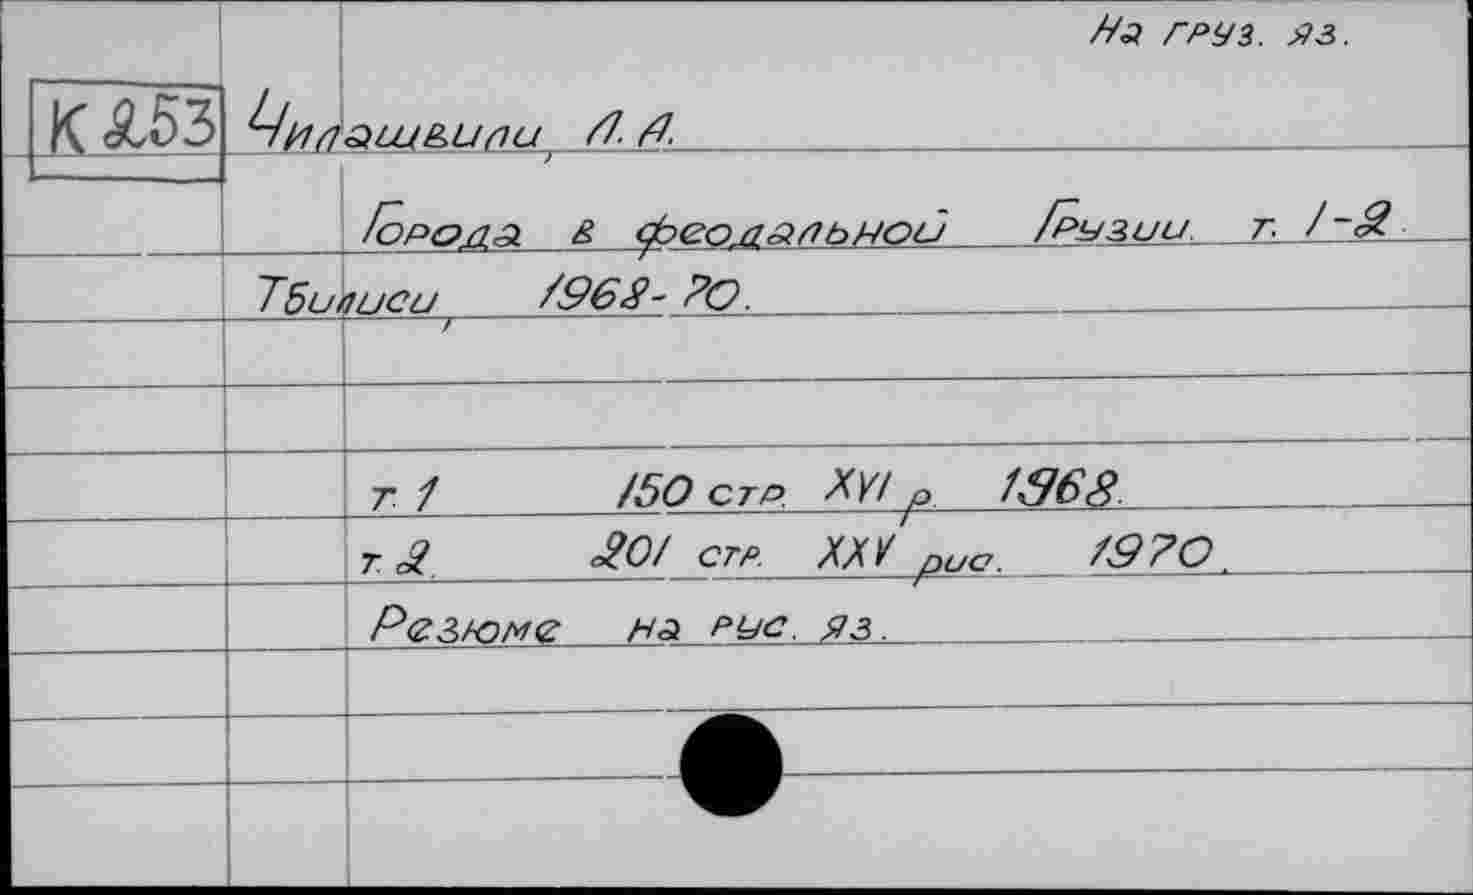 На груз. яз.
К 253 Чилашвили, Л. А.
Города в феодальной Грузии. т. 1-2.
Тбилиси, 1968-70.
т. 1 150 стр. XVI р. 1968.
т. 2. 201 стр. XXV рис. 1970.
Резюме на рус. яз.